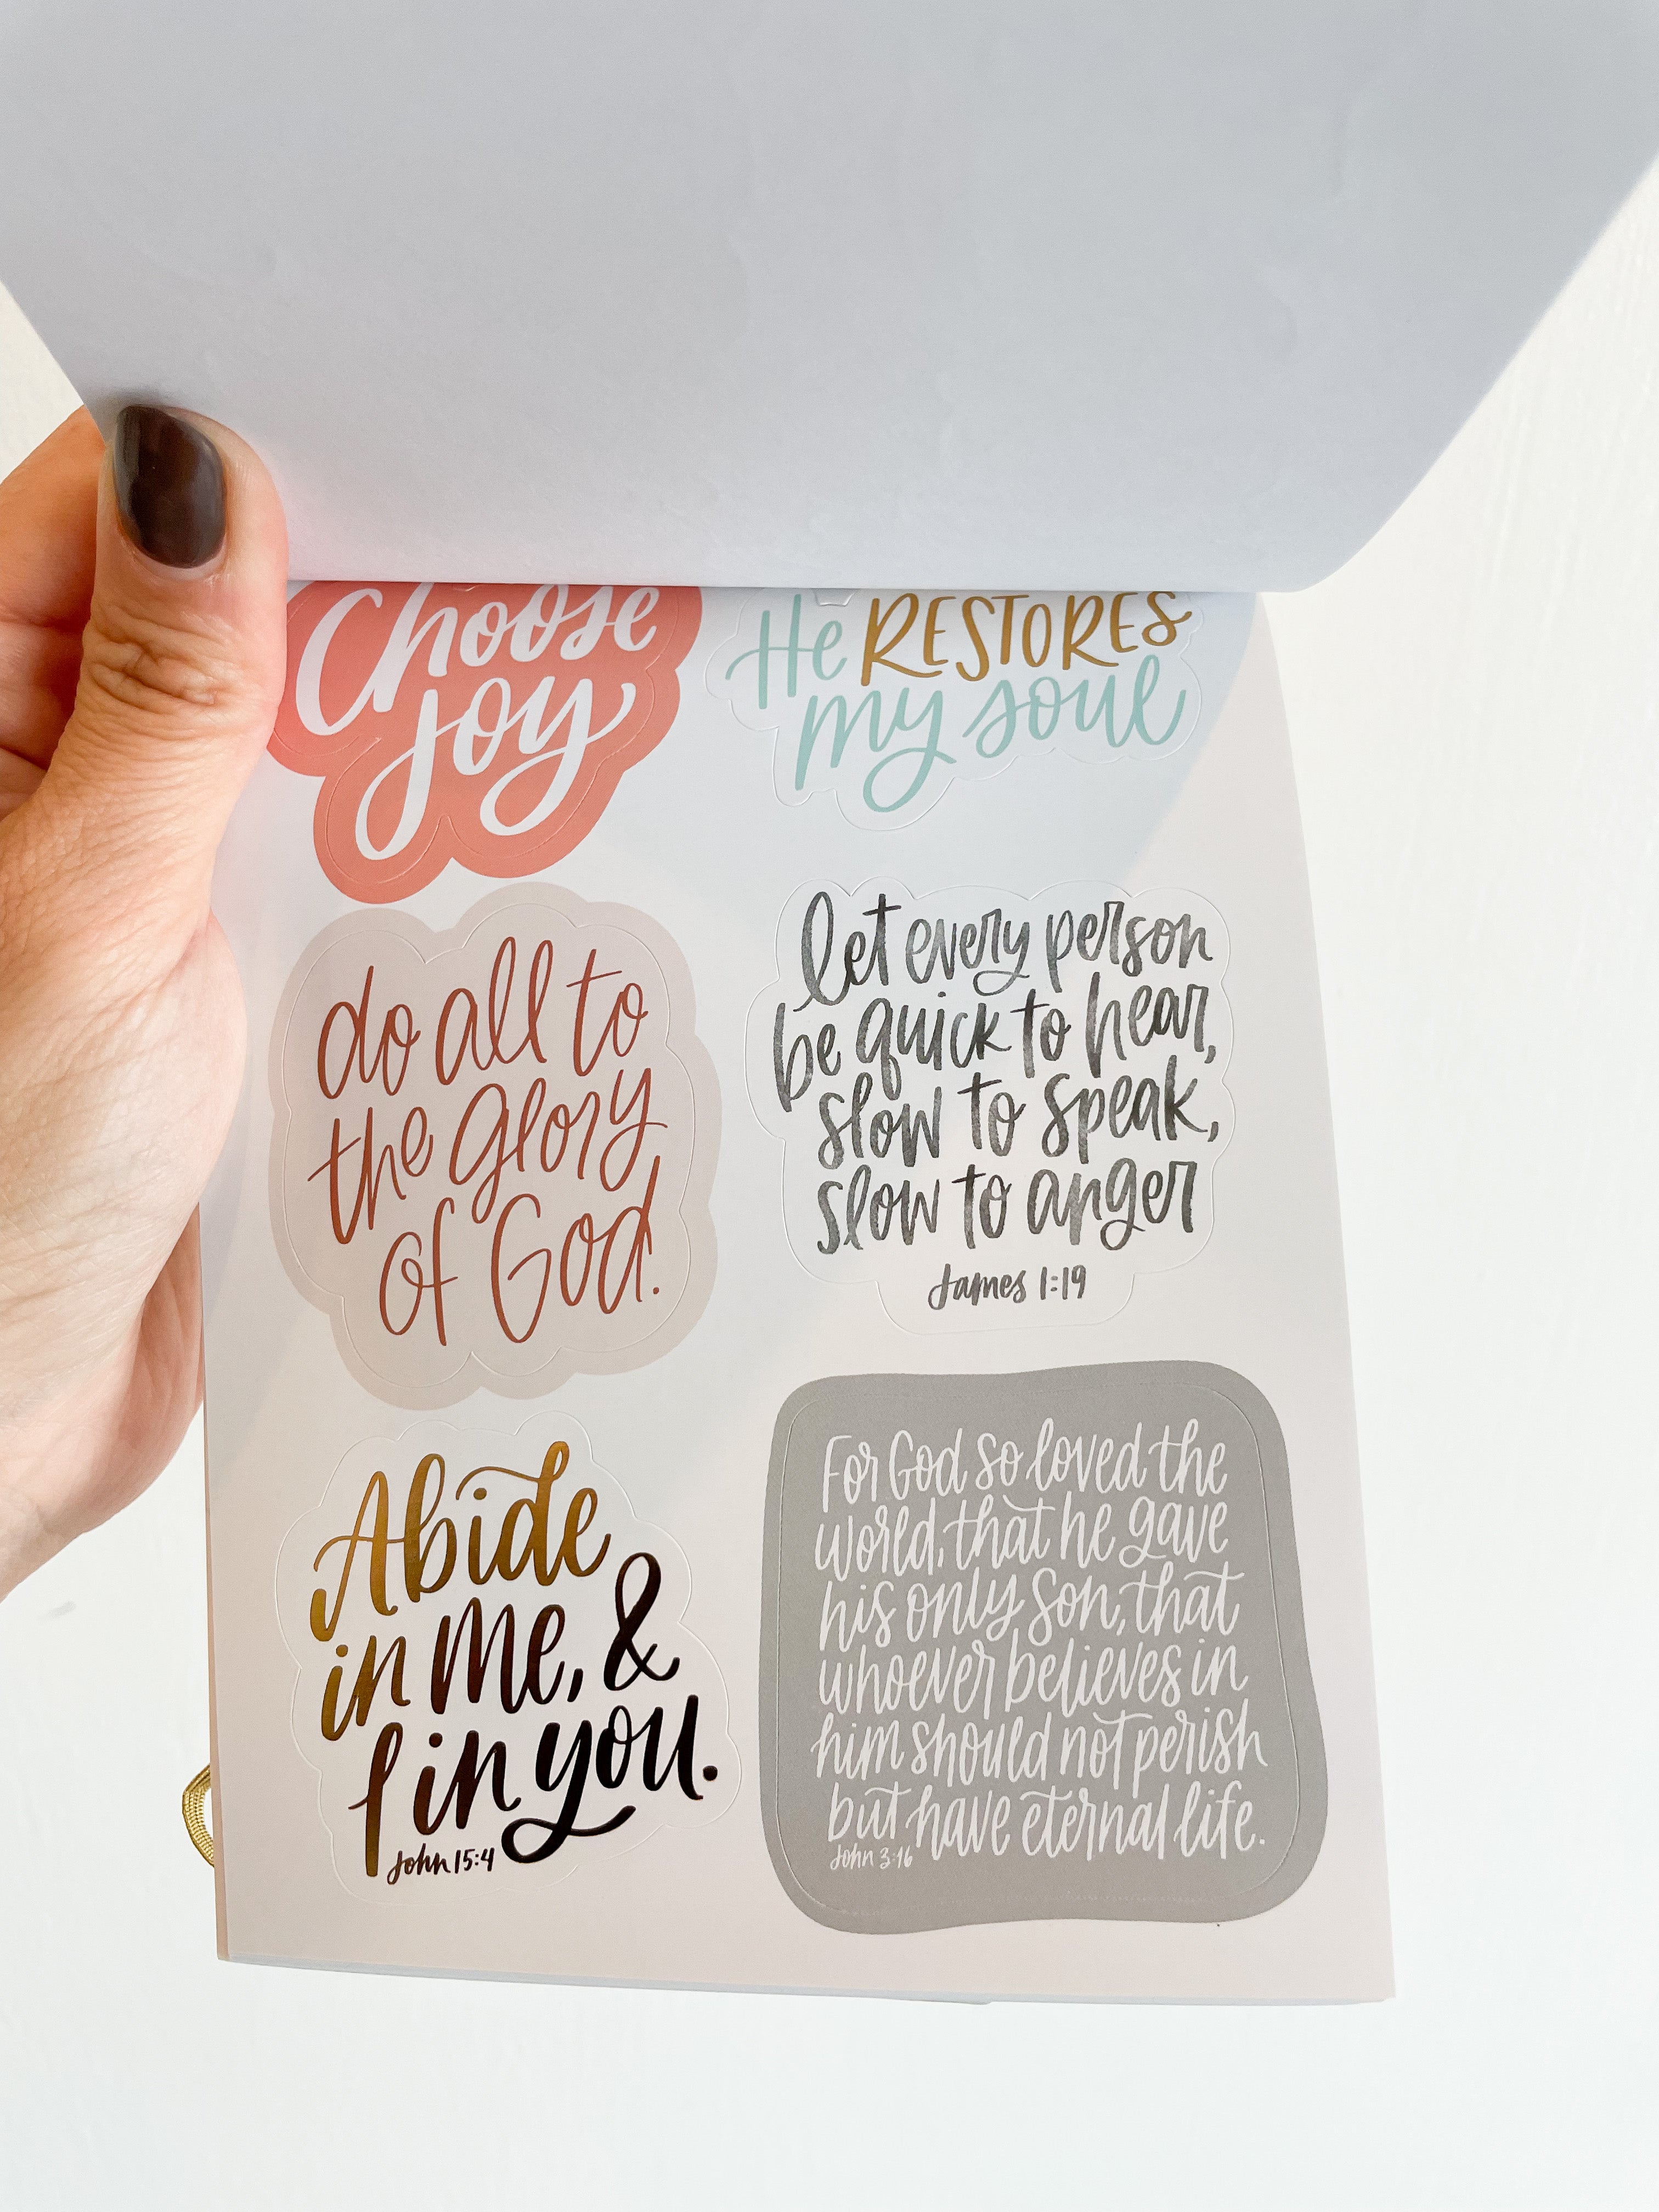 Choose
joy
He RESTORES
my soul
do all to
the glory
of God.
let every person
be quick to hear,
slow to speak,
slow to anger
James 1:19
Abide
in me, &
I in you.
John 15:4
For God so loved the
world, that he gave
his only Son, that
whoever believes in
him should not perish
but have eternal life.
John 3:16